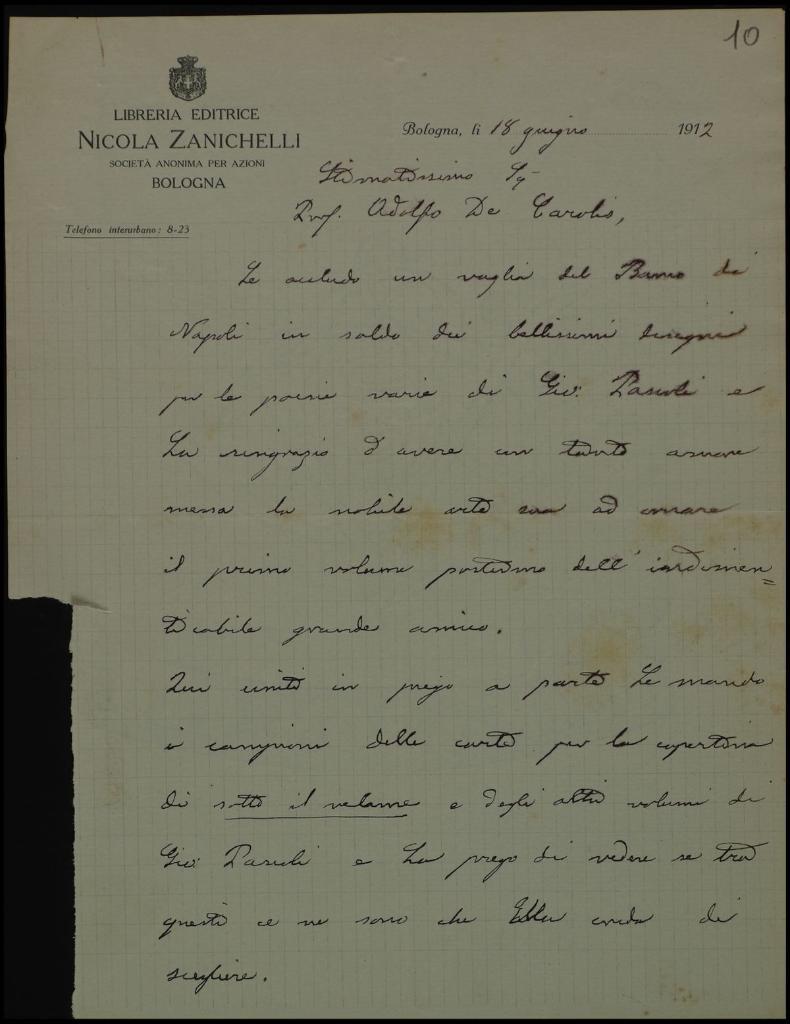 10
LIBRERIA EDITRICE
NICOLA ZANICHELLI
SOCIETÀ ANONIMA PER AZIONI
BOLOGNA
Telefono interurbano: 8-23
Bologna, li 18 giugno 1912
Stimatissimo Sig
Prof. Adolfo De Carolis,
Le accludo un vaglia del Banco di
Napoli in saldo dei bellissimi disegni
per le poesie varie di Gio: Pascoli e
La ringrazio d'avere con tanto amore
messa la nobile arte sua ad ornare
il primo volume postumo dell'indimen=
ticabile grande amico.
Qui unito in piego a parte Le mando
i campioni delle carte per la copertina
di sotto il velame e degli altri volumi di
Gio: Pascoli e La prego di vedere se tra
questi ce ne sono che Ella creda di
scegliere.